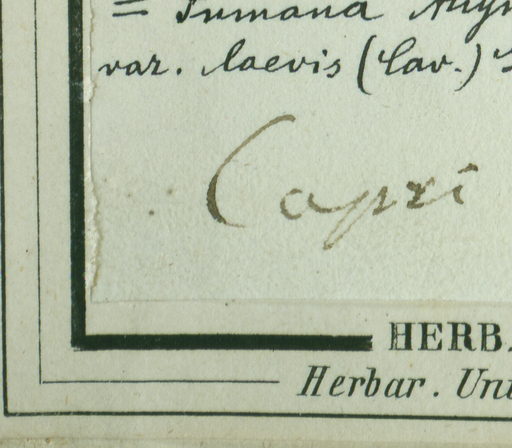 = Fumana
var. laevis (Cav.)
Capri
HERB.
Herbar. Uni